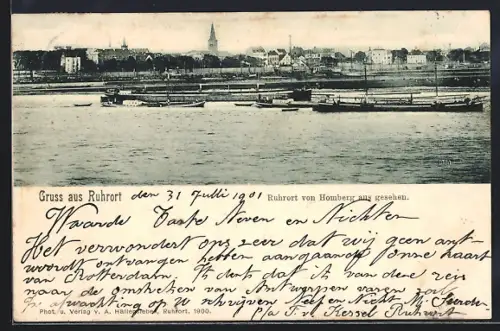 Gruss aus Ruhrort den 31 Julli 1901 Ruhrort von Homberg aus gesehen.
Waarde Tante Neven en Nichten
Het verwondert ons zeer dat wij geen ant-
woordt ontvangen hebben aangaande Jonne kaart
van Rotterdam. Ik denk dat ik van deze reis
naar de omstreken van Antwerpen varen zal
In afwachting op U schrijven Neef en Nicht
Phot. u. Verlag v. A. Ruhrort. 1900. p/a Fr. Kessel Ruhrort